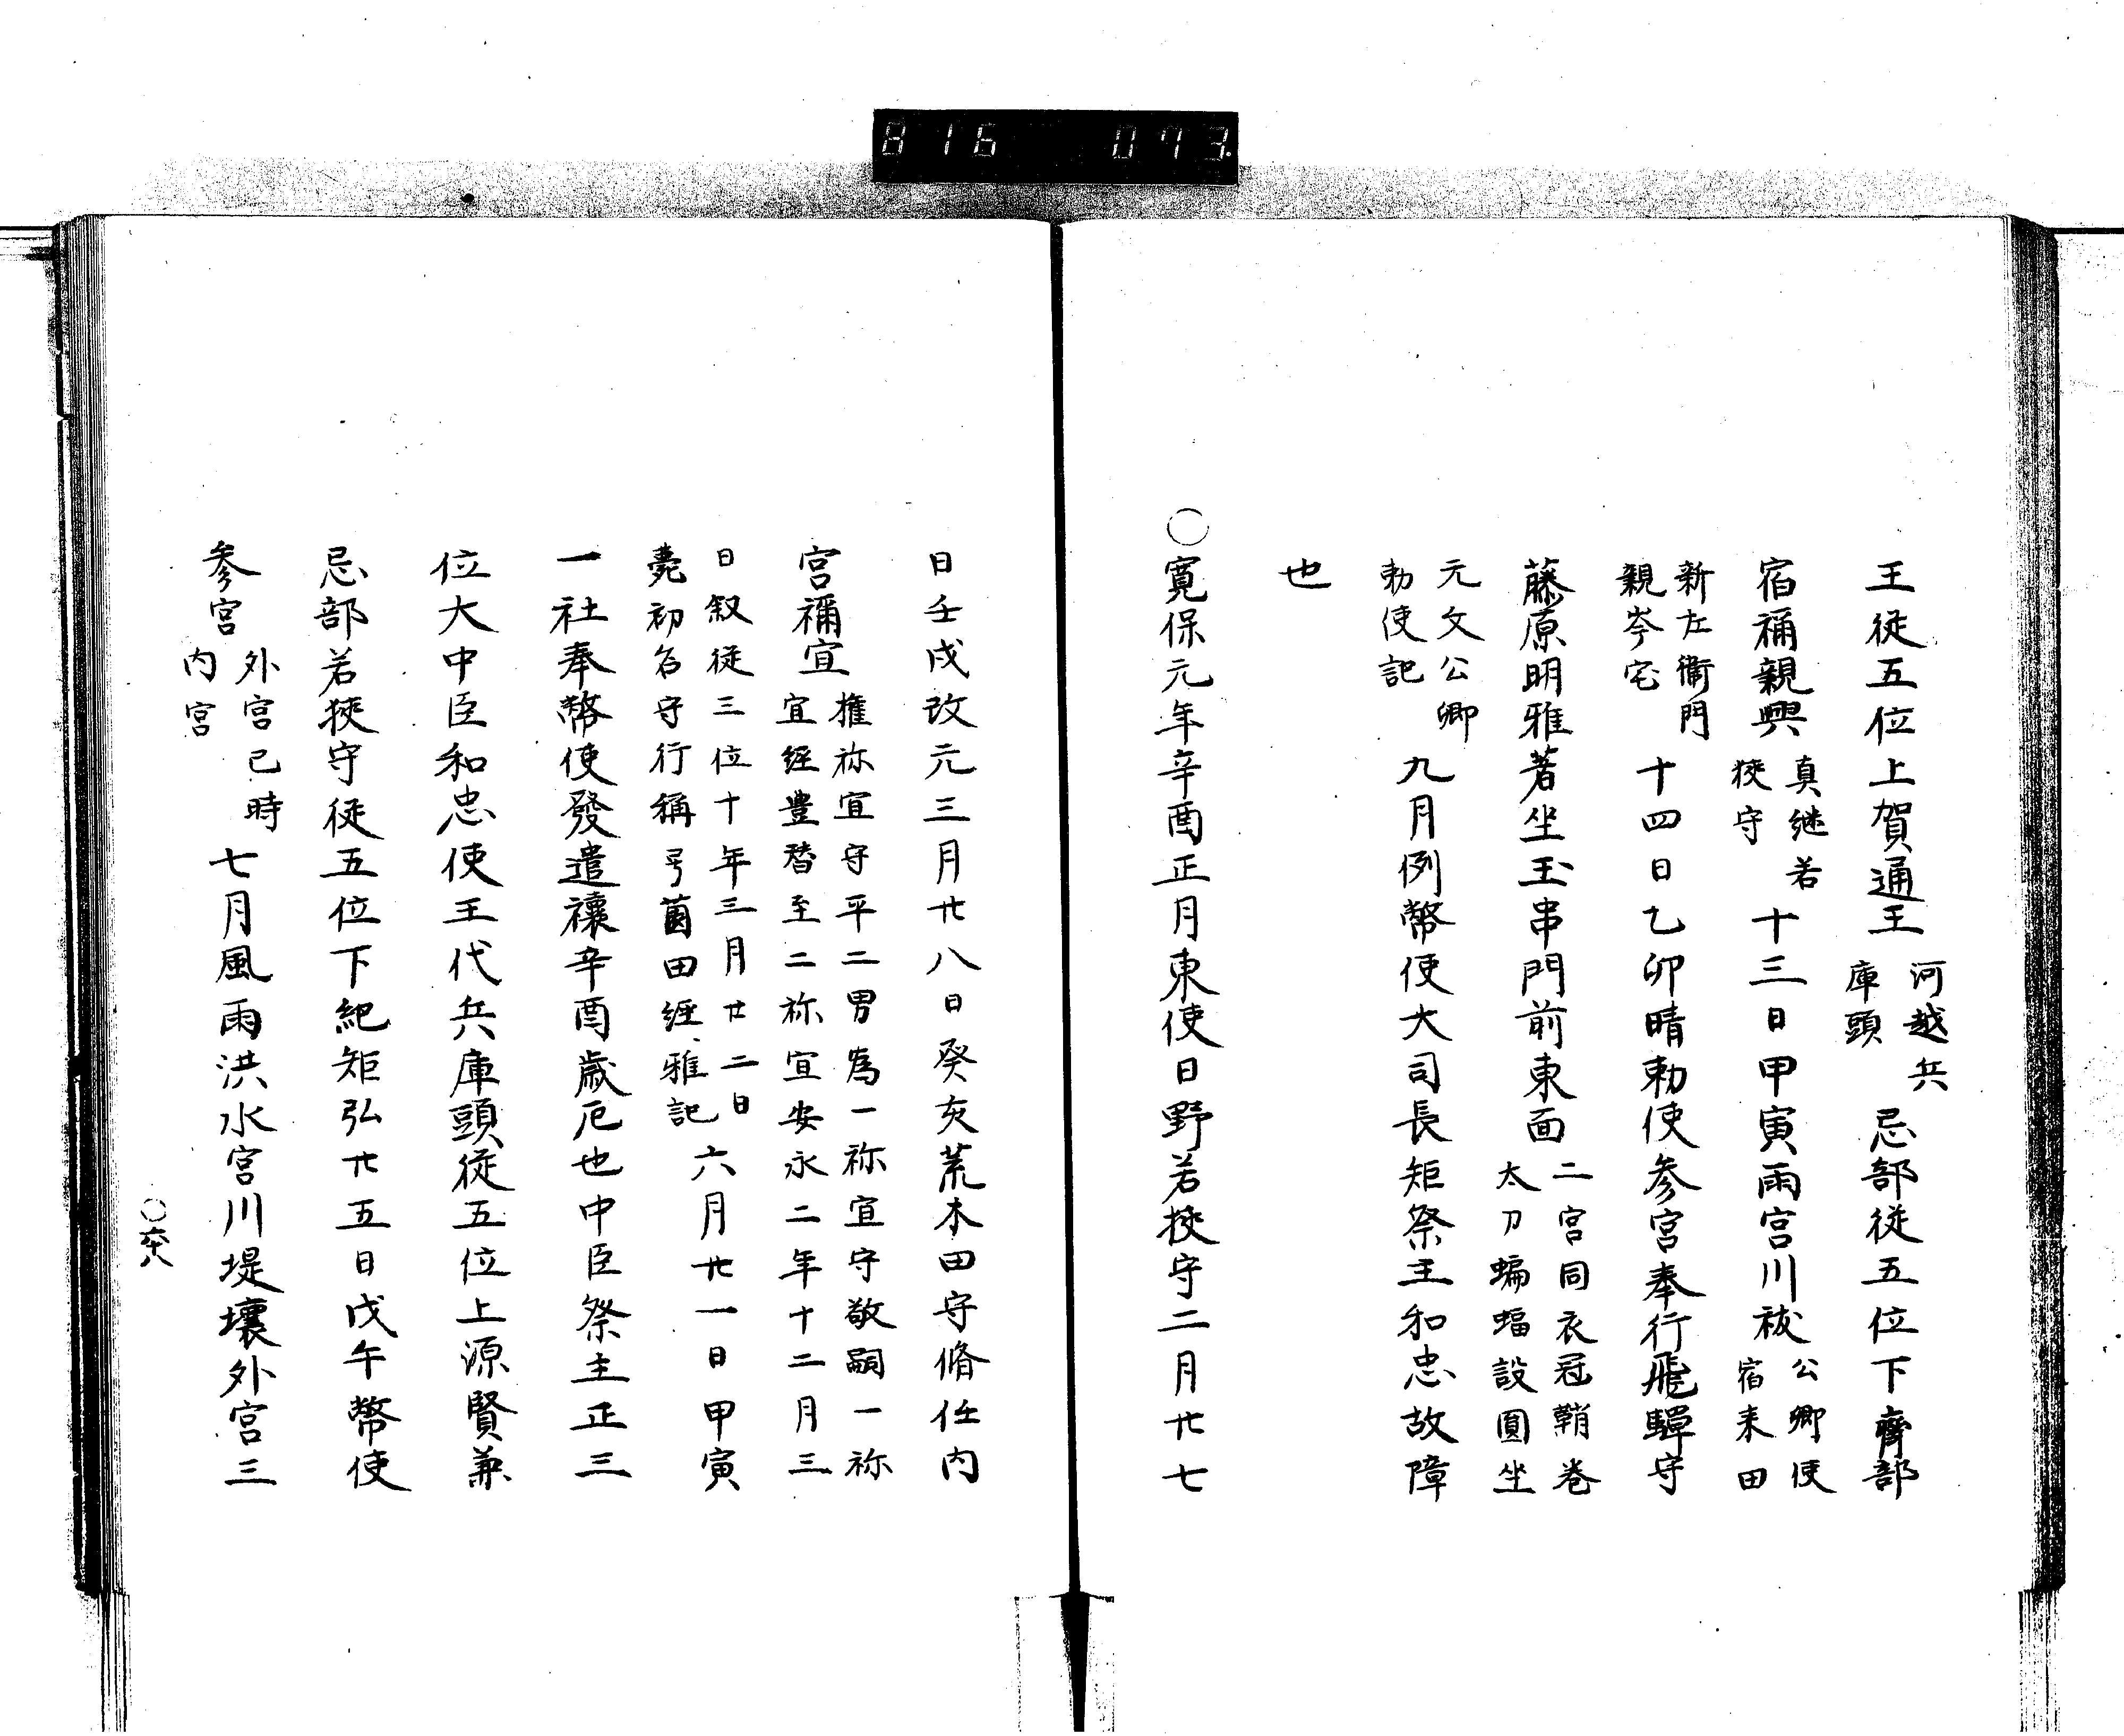 816 073
王従五位上賀通王 河越兵庫頭 忌部従五位下齊部
宿禰親興 真継若狹守 十三日甲寅雨宮川祓 公卿使宿来田
新左衛門親岑宅 十四日乙卯晴勅使参宮奉行飛騨守
藤原明雅著坐玉串門前東面 二宮同衣冠鞘巻太刀蝙蝠設圓坐
元文公卿勅使記 九月例幣使大司長矩祭主和忠故障
也
○寛保元年辛酉正月東使日野若狹守二月廿七
日壬戌改元三月廿八日癸亥荒木田守脩任内
宮禰宜 権祢宜守平二男為一祢宜守敬嗣一祢宜経豊替至二祢宜安永二年十二月三
日叙従三位十年三月廿二日薨初名守行稱号薗田経雅記 六月廿一日甲寅
一社奉幣使發遣禳辛酉歳厄也中臣祭主正三
位大中臣和忠使王代兵庫頭従五位上源賢兼
忌部若狹守従五位下紀矩弘廿五日戊午幣使
参宮 外宮巳時内宮 七月風雨洪水宮川堤壊外宮三
○六十八